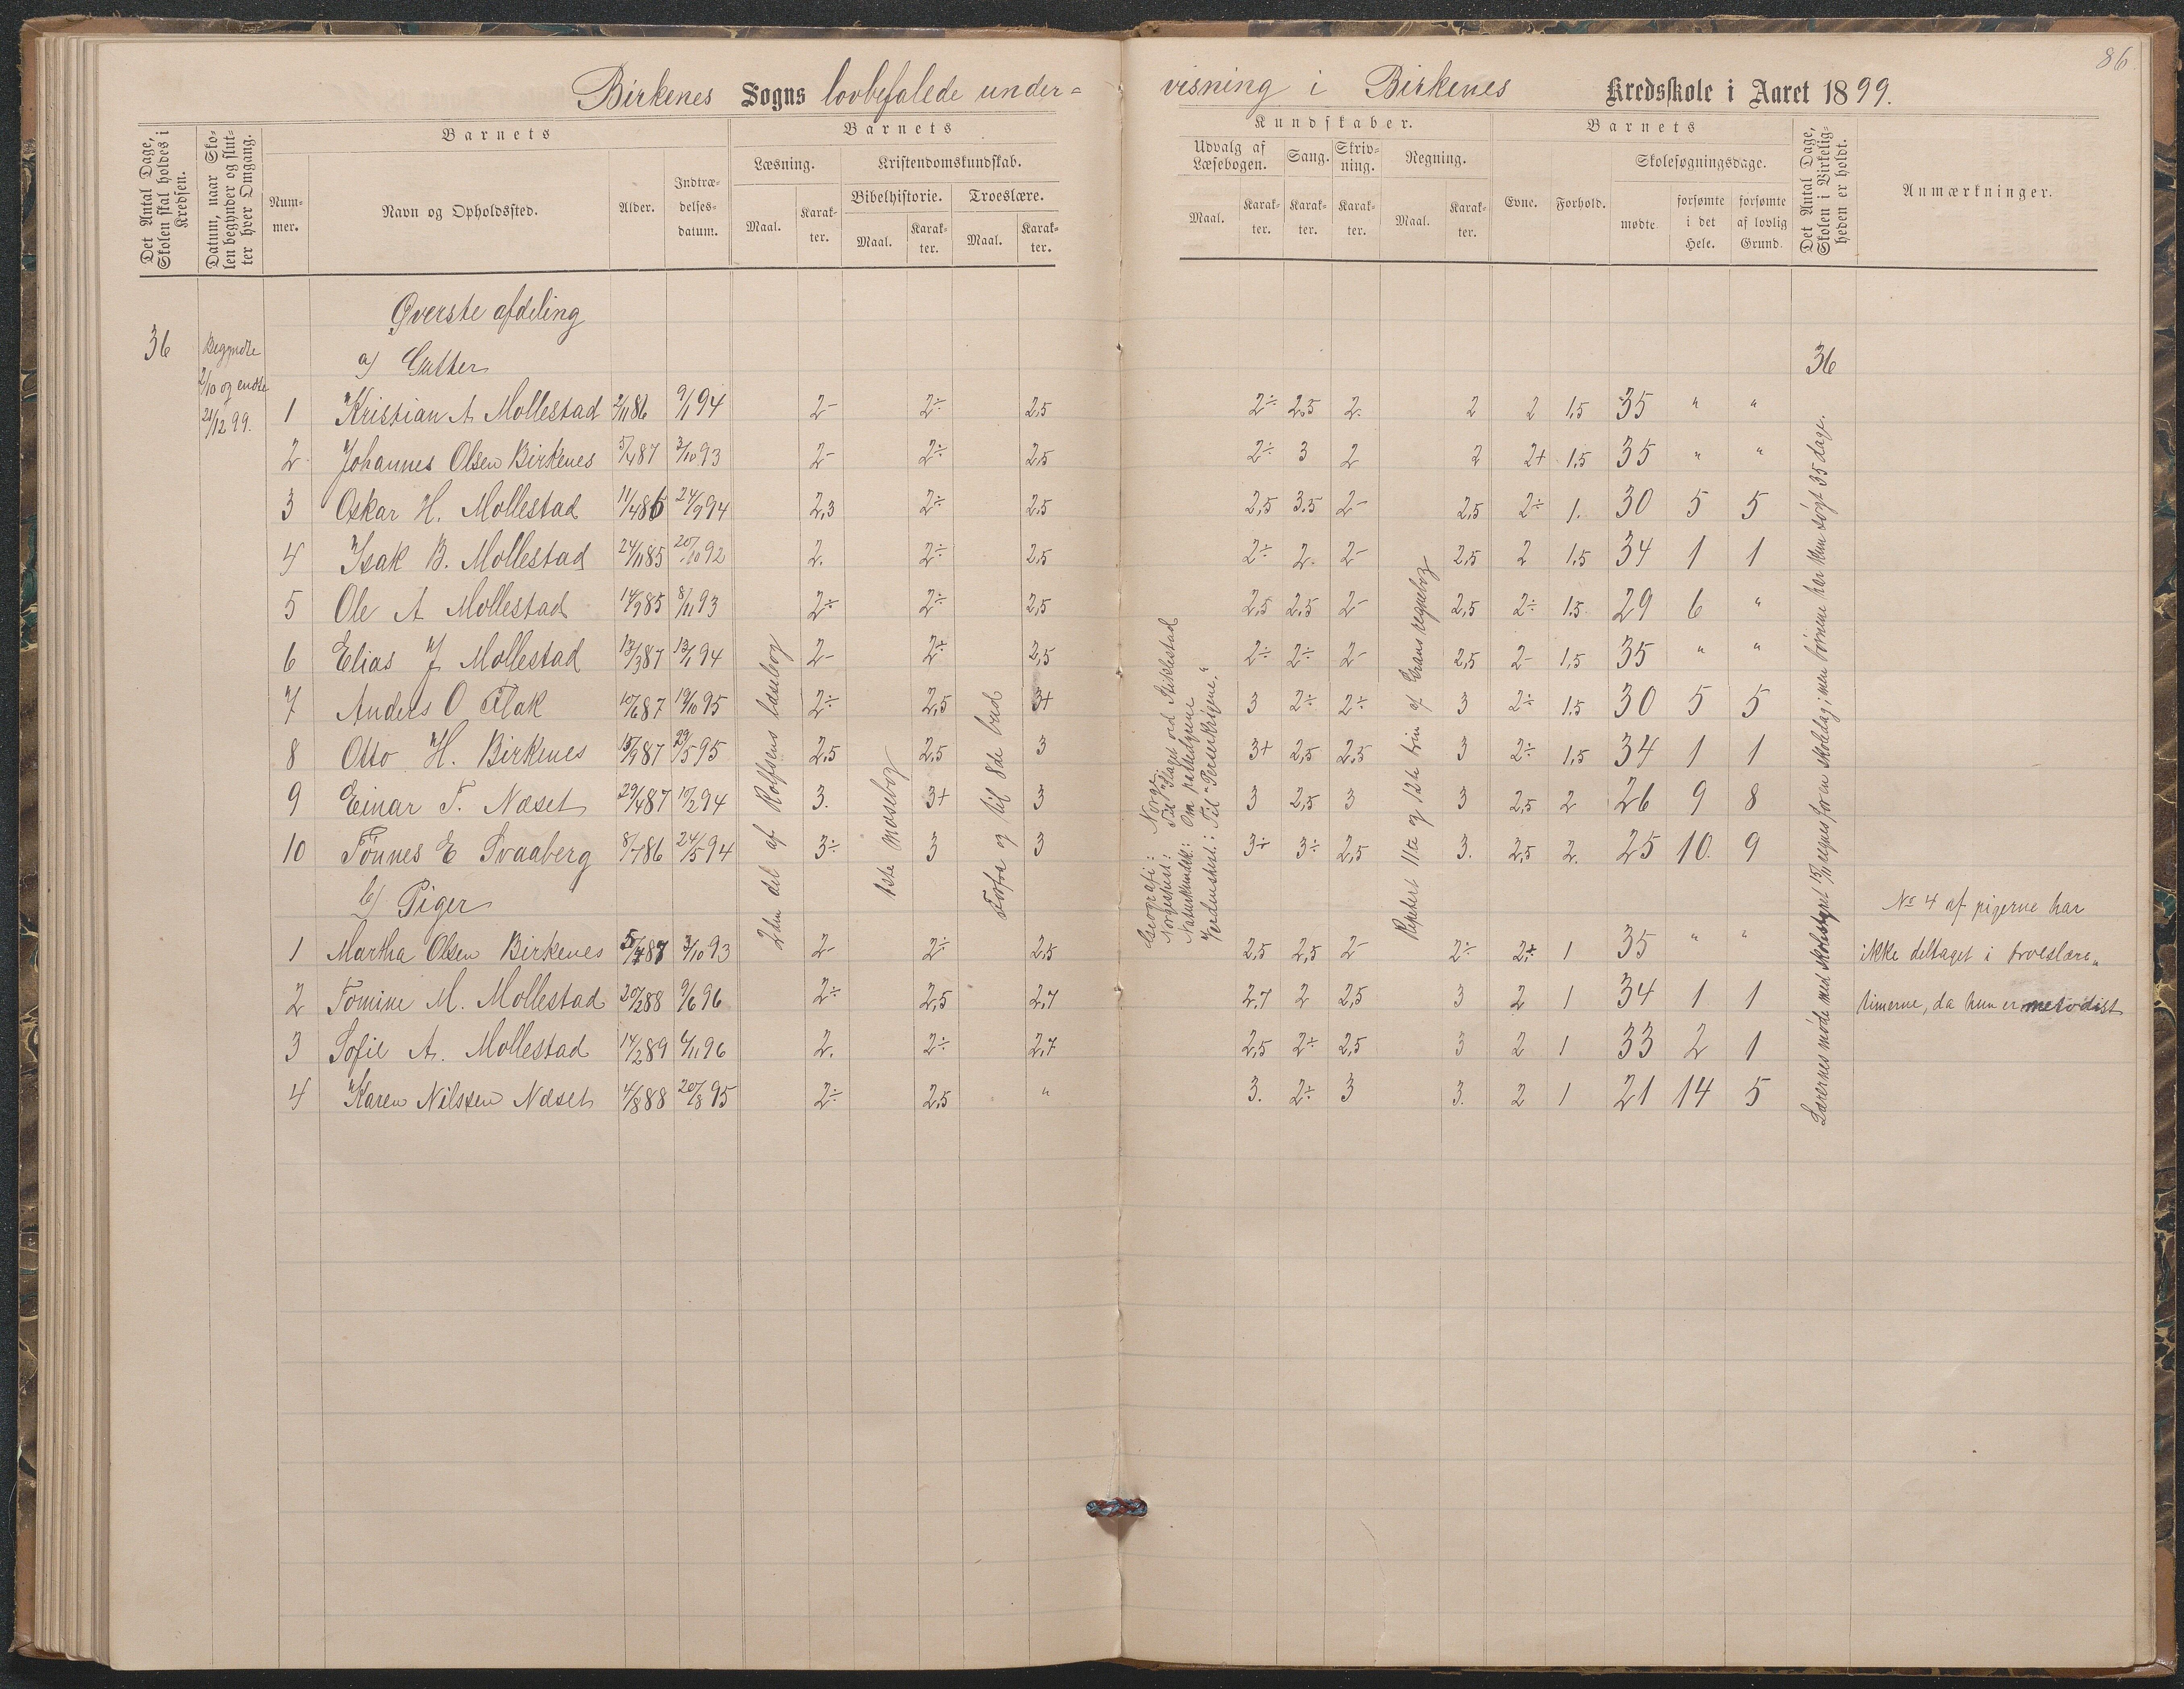 86
Birkenes Sogns lovbefalede under= visning i Birkenes Kredsskole i Aaret 1899.
Det Antal Dage, Skolen skal holdes i Kredsen.
Datum, naar Skolen begynder og slutter hver Omgang.
Barnets
Nummer.
Navn og Opholdssted.
Alder.
Indtrædelsesdatum.
Barnets
Læsning.
Maal.
Karakter.
Kristendomskundskab.
Bibelhistorie.
Maal.
Karakter.
Troeslære.
Maal.
Karakter.
Kundskaber.
Udvalg af Læsebogen.
Maal.
Karakter.
Sang.
Karakter.
Skrivning.
Karakter.
Regning.
Maal.
Karakter.
Barnets
Evne.
Forhold.
Skolesøgningsdage.
mødte
forsømte i det Hele.
forsømte af lovlig Grund.
Det Antal Dage, Skolen i Virkeligheden er holdt.
Anmærkninger.
Øverste afdeling
36 Begyndte 2/10 og endte 21/12 99.
a) Gutter
36
1 Kristian A Mollestad 2/11 86 9/1 94 2- 2÷ 2,5 2÷ 2,5 2. 2 2 1,5 35 " "
2 Johannes Olsen Birkenes 5/4 87 3/10 93 2- 2÷ 2,5 2÷ 3 2 2 2+ 1,5 35 " "
3 Oskar H. Mollestad 11/4 86 24/9 94 2,3 2÷ 2,5 2,5 3.5 2- 2,5 2÷ 1. 30 5 5
4 Isak B. Mollestad 24/11 85 20/10 92 2. 2÷ 2,5 2÷ 2. 2- 2,5 2 1,5 34 1 1
5 Ole A Mollestad 14/9 85 8/11 93 2÷ 2÷ 2,5 2,5 2,5 2- 2,5 2÷ 1,5 29 6 "
6 Elias J Mollestad 13/3 87 13/1 94 2- 2÷ 2,5 2÷ 2÷ 2- 2,5 2- 1,5 35 " "
7 Anders O Flak 10/6 87 19/10 95 2÷ 2,5 3+ 3 2÷ 2÷ 3 2÷ 1,5 30 5 5
8 Otto H. Birkenes 15/9 87 29/5 95 2,5 2,5 3 3+ 2,5 2,5 3 2÷ 1,5 34 1 1
9 Einar T. Næset 29/4 87 19/2 94 3. 3+ 3 3 2,5 3 3 2,5 2 26 9 8
10 Tønnes E Svaaberg 8/7 86 24/5 94 3÷ 3 3 3÷ 3÷ 2,5 3. 2,5 2. 25 10. 9
b) Piger
1 Martha Olsen Birkenes 5/4 87 3/10 93 2- 2÷ 2,5 2,5 2,5 2- 2÷ 2+ 1 35 " "
2 Tomine M. Mollestad 20/2 88 9/6 96 2÷ 2,5 2,7 2,7 2 2,5 3 2 1 34 1 1
3 Sofie A. Mollestad 14/2 89 6/11 96 2. 2÷ 2,7 2,5 2+ 2,5 3 2 1 33 2 1
4 Karen Nilssen Næset 4/8 88 20/8 95 2÷ 2,5 " 3. 2÷ 3 3. 2 1 21 14 5
2den del af Rolfsens læsebog
1ste Mosebog
Forfra og til 8de bud
Geografi: Norge.
Norgeshist: Til "Slaget ved Stiklestad
Naturkundsk: Om pattedyrene
Verdenshist.: Til "Perserkrigene."
Repetert 11te og 12te trin af Grans regnebog
Lærernes møde med skolestyret 15/11 regnes for en skoledag; men børnene har kun søgt 35 dage.
No 4 af pigerne har
ikke deltaget i troeslære„
timerne, da hun er metodist